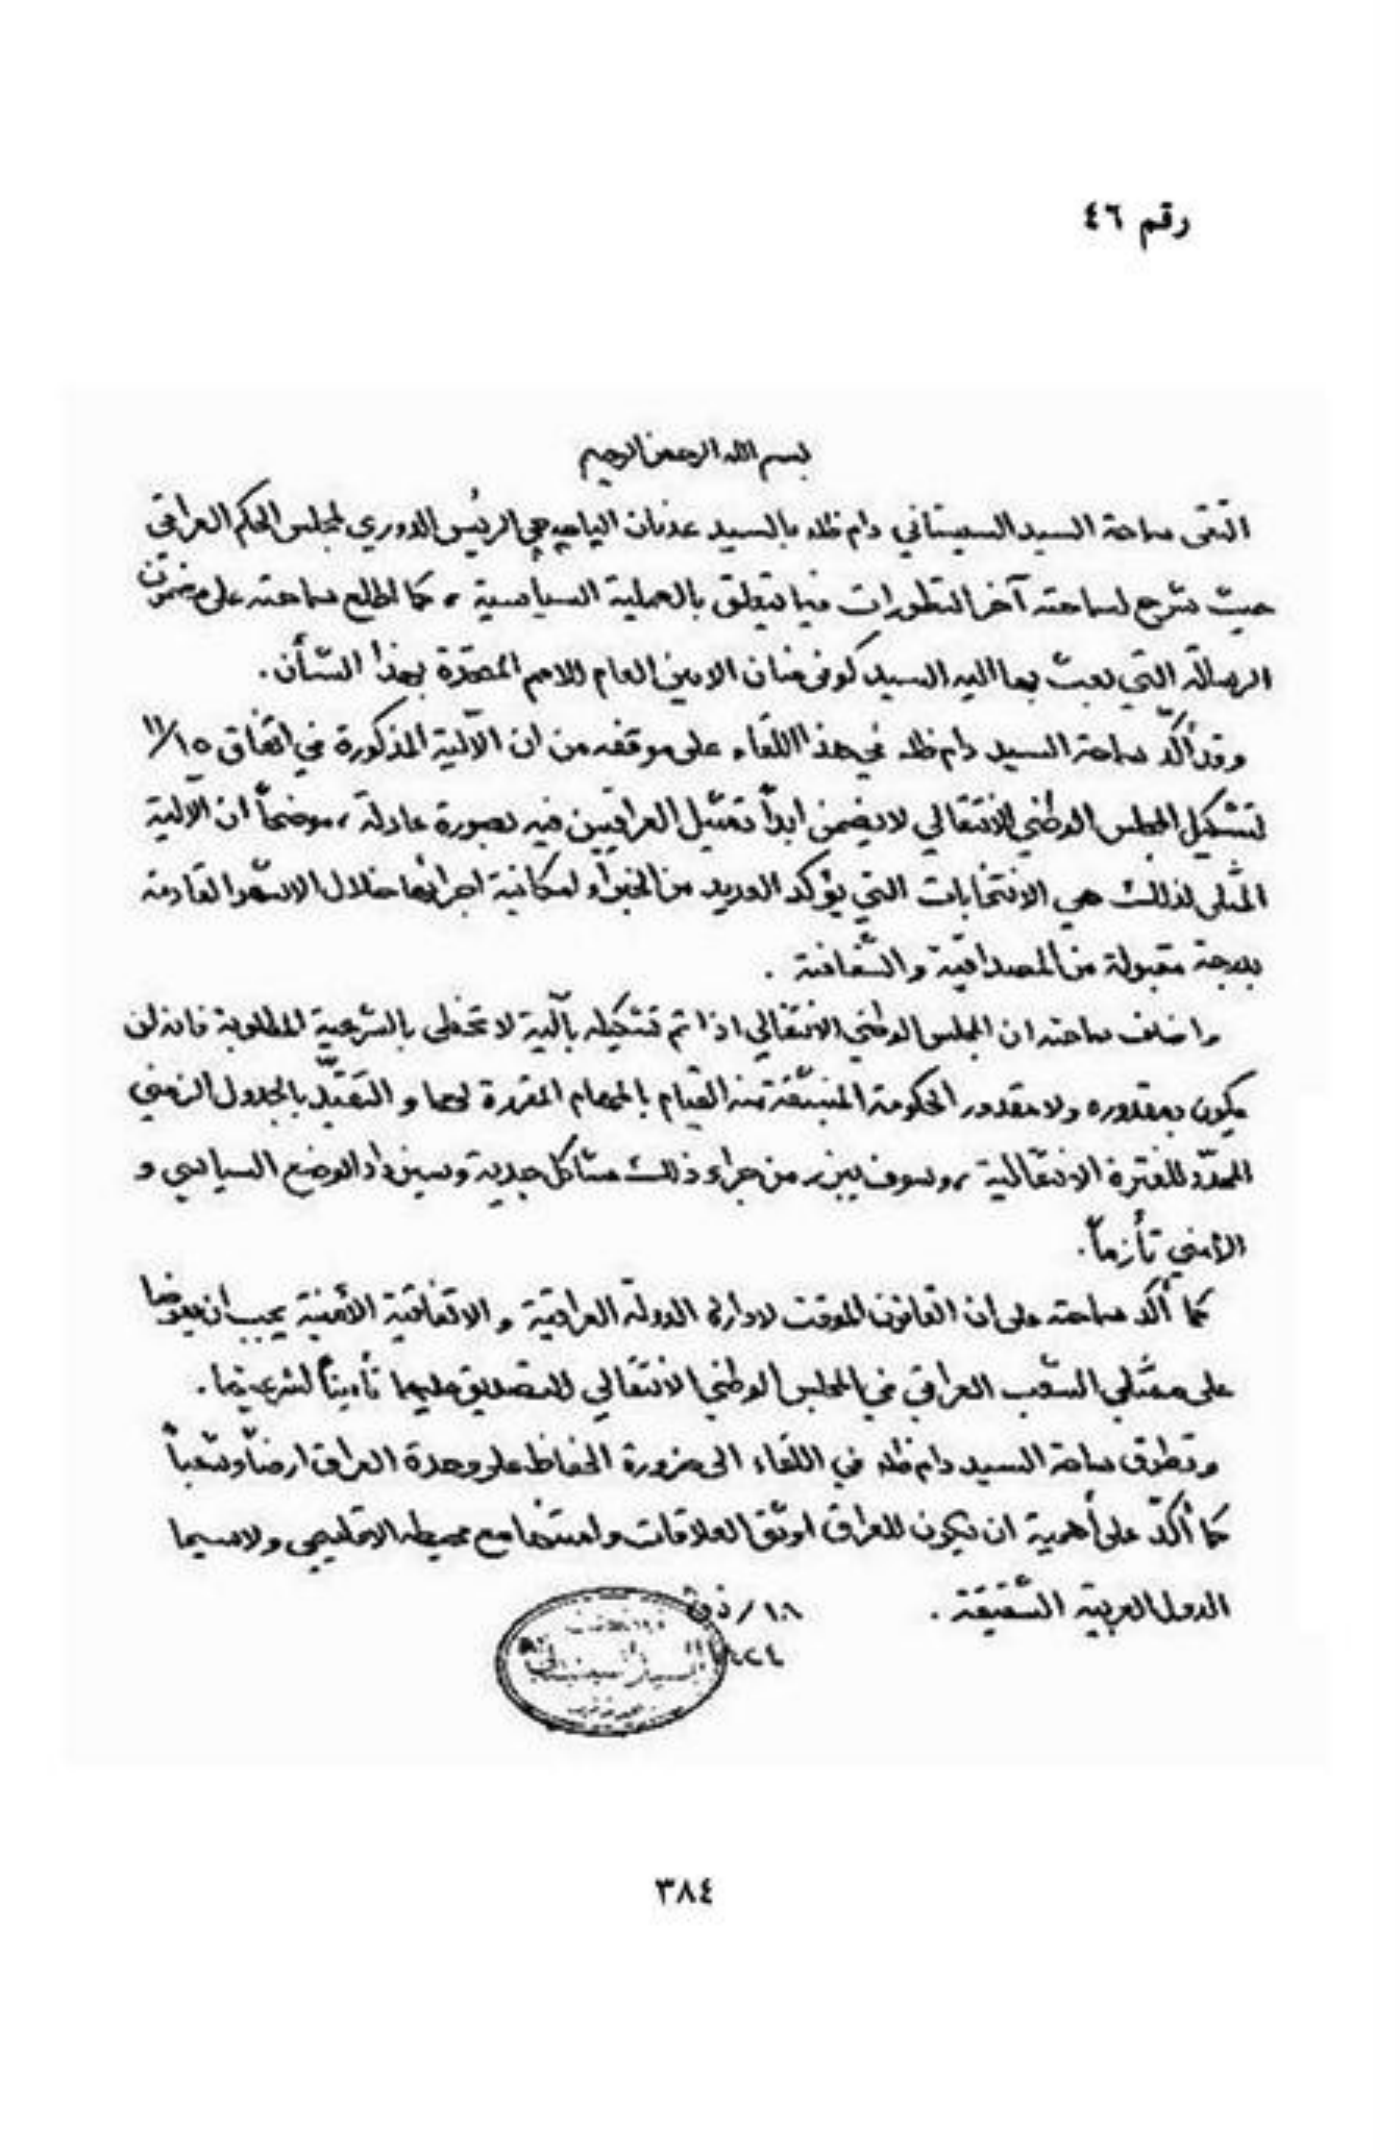 رقم ٤٦
بسم الله الرحمن الرحيم
التقى سماحة السيد السيستاني دام ظله بالسيد عدنان الپاچه چي الرئيس الدوري لمجلس الحكم العراقي
حيث شرح لسماحته آخر التطورات فيما يتعلق بالعملية السياسية ، كما اطلع سماحته على مضمون
الرسالة التي بعث بها اليه السيد كوفي عنان الامين العام للامم المتحدة بهذا الشأن .
وقد أكّد سماحة السيد دام ظله في هذا اللقاء على موقفه من ان الآلية المذكورة في اتفاق ١٥/١١
لتشكيل المجلس الوطني الانتقالي لا يضمن ابداً تمثيل العراقيين فيه بصورة عادلة ، موضحاً ان الآلية
المثلى لذلك هي الانتخابات التي يؤكد العديد من الخبراء امكانية اجرائها خلال الاشهر القادمة
بدرجة مقبولة من المصداقية والشفافية .
واضاف سماحته ان المجلس الوطني الانتقالي اذا تم تشكيله بآلية لا تحظى بالشرعية المطلوبة فانه لن
يكون بمقدوره ولا بمقدور الحكومة المنبثقة منه القيام بالمهام المقررة لهما و التقيّد بالجدول الزمني
المحدّد للفترة الانتقالية ، وسوف يبرز من جراء ذلك مشاكل جديدة وسيزداد الوضع السياسي و
الأمني تأزماً .
كما أكّد سماحته على ان القانون الموقت لادارة الدولة العراقية و الاتفاقية الأمنية يجب ان يعرضا
على ممثلي الشعب العراقي في المجلس الوطني الانتقالي للتصديق عليهما تأميناً لشرعيتهما .
وتطرق سماحة السيد دام ظله في اللقاء الى ضرورة الحفاظ على وحدة العراق ارضاً وشعباً
كما أكّد على أهمية ان يكون للعراق اوثق العلاقات وامتنها مع محيطه الاقليمي ولاسيما
الدول العربية الشقيقة .
١٨/ذق
١٤٢٤
السيد السيستاني
٣٨٤